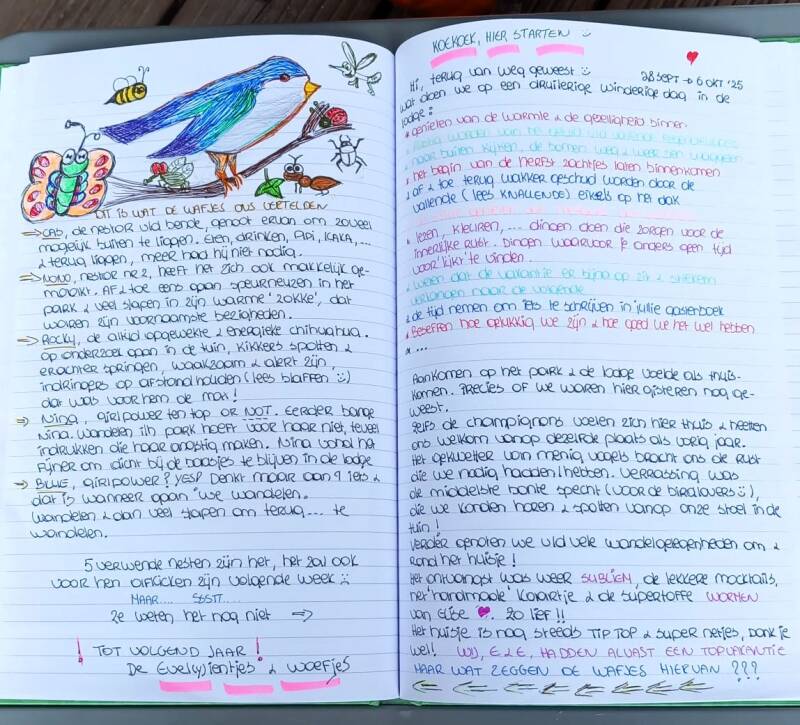 DIT IS WAT DE WAFJES ONS VERTELDEN
⇒ CAS, de nestor v/d bende, genoot ervan om zoveel
mogelijk buiten te liggen. Eten, drinken, PIPI, KAKA, ...
& terug liggen, meer had hij niet nodig.
⇒ NONO, nestor nr. 2, heeft het zich ook makkelijk ge-
maakt. Af & toe eens gaan speurneuzen in het
park & veel slapen in zijn warme 'zokke', dat
waren zijn voornaamste bezigheden.
⇒ Rocky, de altijd opgewekte & energieke chihuahua.
Op onderzoek gaan in de tuin, kikkers spotten &
erachter springen, waakzaam & alert zijn,
indringers op afstand houden (lees blaffen ☺)
dat was voor hem de max!
⇒ Nina, girlpower ten top OR NOT. Eerder bange
Nina. Wandelen i/h park hoeft voor haar niet, teveel
indrukken die haar angstig maken. Nina vond het
fijner om dicht bij de baasjes te blijven in de lodge
⇒ BILLIE, girlpower? YESP Denkt maar aan 1 iets &
dat is wanneer gaan we wandelen.
Wandelen & dan veel slapen om terug... te
wandelen.
5 verwende nesten zijn het, het zal ook
voor hen afkicken zijn volgende week ☺
MAAR.... SSSTT....
Ze weten het nog niet ⇒
! TOT VOLGEND JAAR !
De Evel(y)ientjes & woefjes
KOEKOEK, HIER STARTEN ☺
28 SEPT → 6 OKT '25
Hi, terug van weg geweest ☺
wat doen we op een druilerige winderige dag in de
lodge:
genieten van de warmte & de gezelligheid binnen
naar buiten kijken, de bomen weg & weer zien waggelen
het begin van de herfst zachtjes laten binnenkomen
af & toe terug wakker geschud worden door de
vallende (lees KNALLENDE) eikels op het dak
lezen, kleuren, ... dingen doen die zorgen voor de
innerlijke rust. Dingen waarvoor je anders geen tijd
voor 'kijkt' te vinden.
weten dat de vakantie er bijna op zit & stiekem
verlangen naar de volgende
de tijd nemen om iets te schrijven in jullie gastenboek
Beseffen hoe gelukkig we zijn & hoe goed we het wel hebben
& ...
Aankomen op het park & de lodge voelde als thuis-
komen. Precies of we waren hier gisteren nog ge-
weest.
Zelfs de champignons voelen zich hier thuis & heetten
ons welkom vanop dezelfde plaats als vorig jaar.
Het gekwetter van menig vogels bracht ons de rust
die we nodig hadden/hebben. Verrassing was
de middelste bonte specht (voor de birdlovers ☺),
die we konden horen & spotten vanop onze stoel in de
tuin!
Verder genoten we v/d vele wandelgelegenheden om &
rond het huisje!
Het ontvangst was weer SUBLIEM, de lekkere mocktails,
het 'handmade' kaartje & de supertoffe WORMEN
van Elise ♥. Zo lief!!
Het huisje is nog steeds TIP TOP & super netjes, dank je
wel! WIJ, E & E, HADDEN ALVAST EEN TOPVAKANTIE
MAAR WAT ZEGGEN DE WAFJES HIERVAN ???